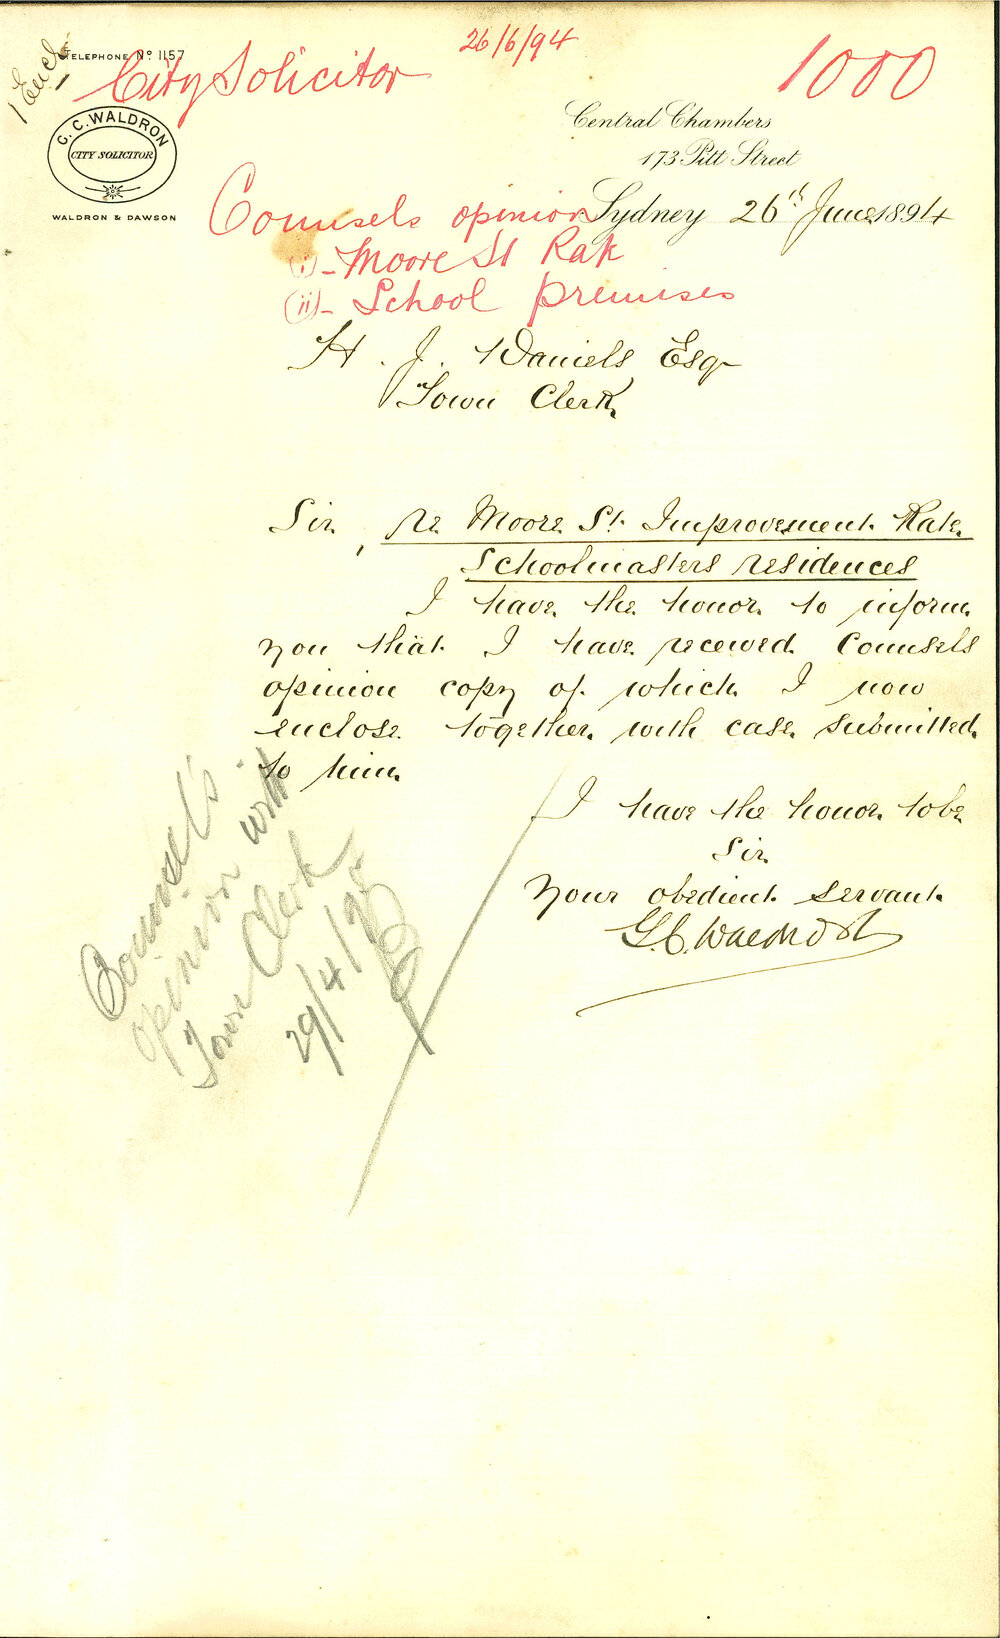 26/6/94
1 Encl.
TELEPHONE No. 1157
City Solicitor
1000
G. C. WALDRON
CITY SOLICITOR
WALDRON & DAWSON
Central Chambers
173 Pitt Street
Sydney 26th June 1894
Counsels opinion
(i) - Moore St Rate
(ii) - School premises
H. J. Daniels Esq
Town Clerk
Sir, re Moore St. Improvement Rate
Schoolmasters residences
I have the honor to inform
you that I have received Counsels
opinion copy of which I now
enclose together with case submitted
to him
I have the honor to be
Sir
Your obedient servant
G.C. Waldron
Counsel's
opinion with
Town Clerk
29/4/95